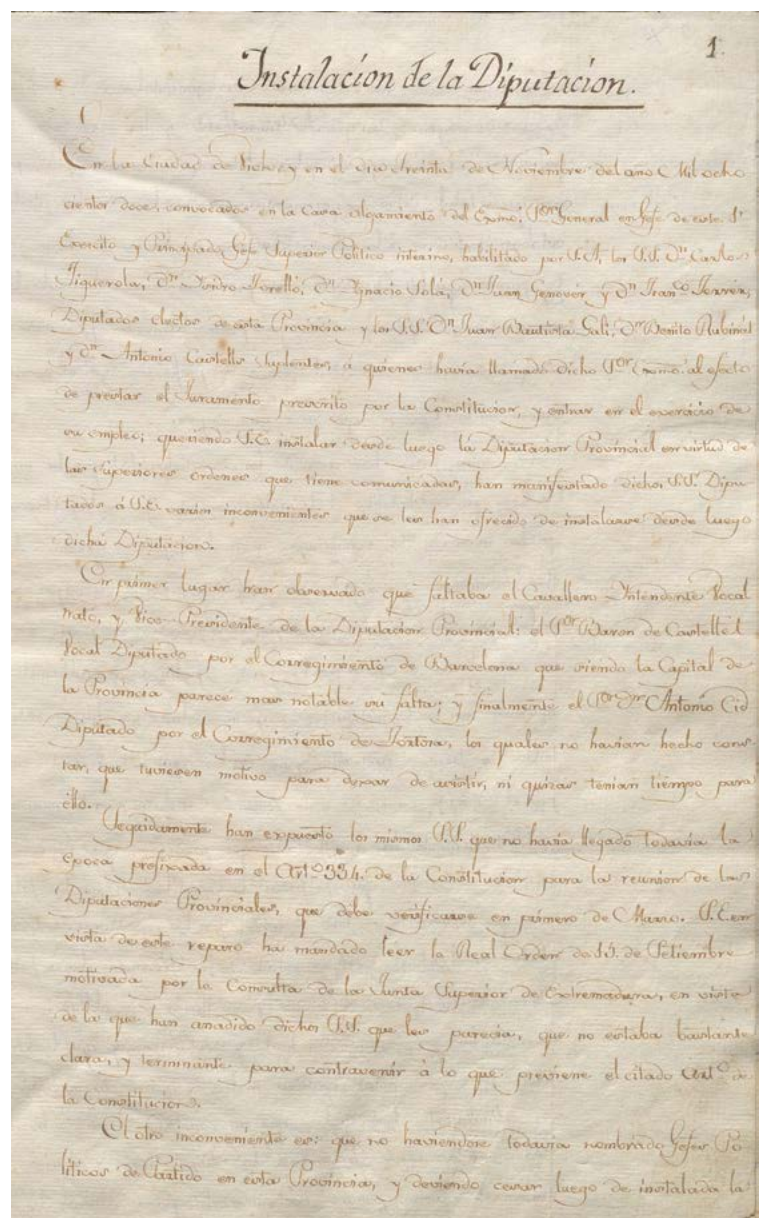 1.
Instalacion de la Diputacion.
En la Ciudad de Vich, y en el dia treinta de Noviembre del año Mil ocho
cientos doce; convocados en la Casa alojamiento del Exmo. Sor. General en Gefe de este 1r.
Exercito y Principado, Gefe Superior Politico interino, habilitado por S.A, los S.S. Dn. Carlos
Figuerola, Dn. Isidro Torelló, Dn. Ygnacio Solá, Dn. Juan Genover y Dn. Franco. Ferrér,
Diputados electos de esta Provincia y los S.S. Dn. Juan Bautista Galí, Dn. Benito Rubinat
y Dn. Antonio Castells Suplentes, á quienes havia llamado dicho Sor. Exmo. al efecto
de prestar el Juramento prescrito por la Constitucion, y entrar en el exercicio de
su empleo; queriendo S.E. instalar desde luego la Diputacion Provincial en virtud de
las Superiores ordenes que tiene comunicadas, han manifestado dichos S.S. Dipu-
tados á S.E. varios inconvenientes que se les han ofrecido de instalarse desde luego
dicha Diputacion.
En primer lugar han observado que faltaba el Cavallero Yntendente Vocal
nato, y Vice-Presidente de la Diputacion Provincial: el Sor. Baron de Castellét
Vocal Diputado por el Corregimiento de Barcelona que siendo la Capital de
la Provincia parece mas notable su falta; y finalmente el Sor. Dn. Antonio Cid
Diputado por el Corregimiento de Tortosa, los quales no havian hecho cons
tar, que tuviesen motivo para dexar de asistir, ni quizas tenian tiempo para
ello.
Seguidamente han expuesto los mismos S.S. que no havia llegado todavia la
epoca prefixada en el Arto. 334. de la Constitucion para la reunion de las
Diputaciones Provinciales, que debe verificarse en primero de Marzo. S.E. en
vista de este reparo ha mandado leer la Real Orden de 15. de Setiembre
motivada por la Consulta de la Junta Superior de Extremadura, en vista
de la que han anadido dichos S.S. que les parecia, que no estaba bastante
clara, y terminante para contravenir á lo que previene el citado Arto. de
la Constitucion.
El otro inconveniente es: que no haviendose todavia nombrado Gefes Po
liticos de Partido en esta Provincia, y deviendo cesar luego de instalada la